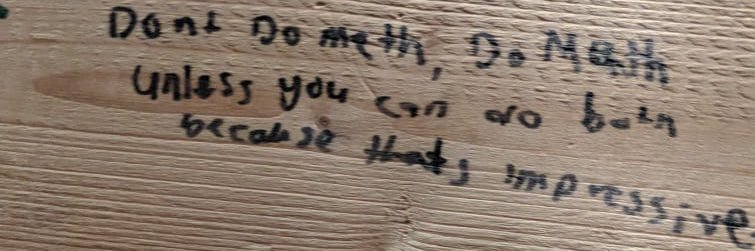 Dont Do meth, Do Math
Unless you can do both
because thats impressive